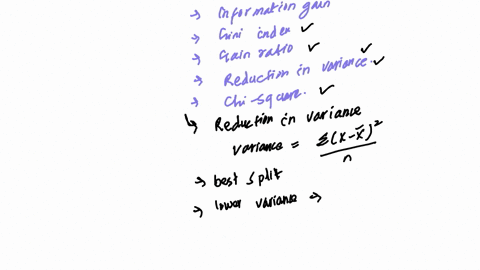 → Information gain
→ Gini index ✓
→ Gain ratio ✓
→ Reduction in variance. ✓✓
→ Chi-square. ✓
↳ Reduction in variance
variance = Σ(x-x̄)² / n
→ best split
→ lower variance →